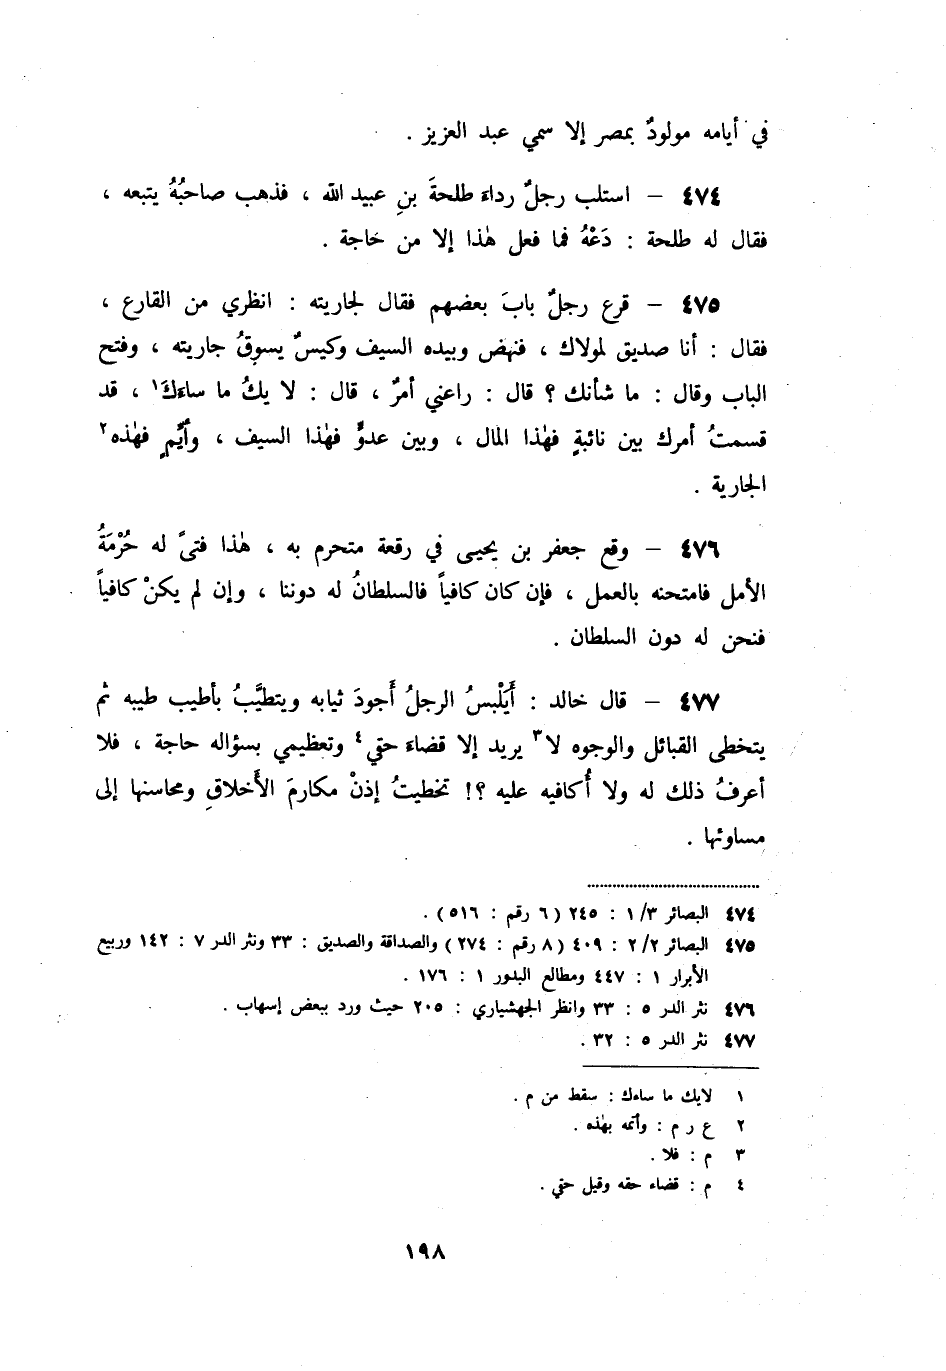 في أيامه مولودٌ بمصر إلا سمي عبد العزيز .
٤٧٤ – استلب رجلٌ رداءَ طلحةَ بنِ عبيد الله ، فذهب صاحبُهُ يتبعه ،
فقال له طلحة : دَعْهُ فما فعل هٰذا إلا من حَاجة .
٤٧٥ – قرع رجلٌ بابَ بعضهم فقال لجاريته : انظري من القارع ،
فقال : أنا صديق لمولاك ، فنهض وبيده السيف وكيسٌ يسوقُ جاريته ، وفتح
الباب وقال : ما شأنك ؟ قال : راعني أمرٌ ، قال : لا يكُ ما ساءكَ١ ، قد
قسمتُ أمرك بين نائبةٍ فهٰذا المال ، وبين عدوٍّ فهٰذا السيف ، وأَيِّمٍ فهٰذه٢
الجارية .
٤٧٦ – وقع جعفر بن يحيى في رقعة متحرم به ، هٰذا فتىً له حُرْمَةُ
الأمل فامتحنه بالعمل ، فإن كان كافياً فالسلطانُ له دوننا ، وإن لم يكنْ كافياً
فنحن له دون السلطان .
٤٧٧ – قال خالد : أَيَلْبسُ الرجلُ أَجودَ ثيابه ويتطيَّبُ بأطيب طيبه ثم
يتخطى القبائل والوجوه لا٣ يريد إلا قضاءَ حقي٤ وتعظيمي بسؤاله حاجة ، فلا
أعرفُ ذلك له ولا أُكافيه عليه ؟! تخطيتُ إذنْ مكارمَ الأَخلاقِ ومحاسنها إلى
مساوئها .
٤٧٤ البصائر ١/٣ : ٢٤٥ (٦ رقم : ٥١٦) .
٤٧٥ البصائر ٢/٢ : ٤٠٩ (٨ رقم : ٢٧٤) والصداقة والصديق : ٣٣ ونثر الدر ٧ : ١٤٢ وربيع
الأبرار ١ : ٤٤٧ ومطالع البدور ١ : ١٧٦ .
٤٧٦ نثر الدر ٥ : ٣٣ وانظر الجهشياري : ٢٠٥ حيث ورد ببعض إسهاب .
٤٧٧ نثر الدر ٥ : ٣٢ .
١ لايك ما ساءك : سقط من م .
٢ ع ر م : وأتمه بهٰذه .
٣ م : فلا .
٤ م : قضاء حقه وقيل حقي .
١٩٨